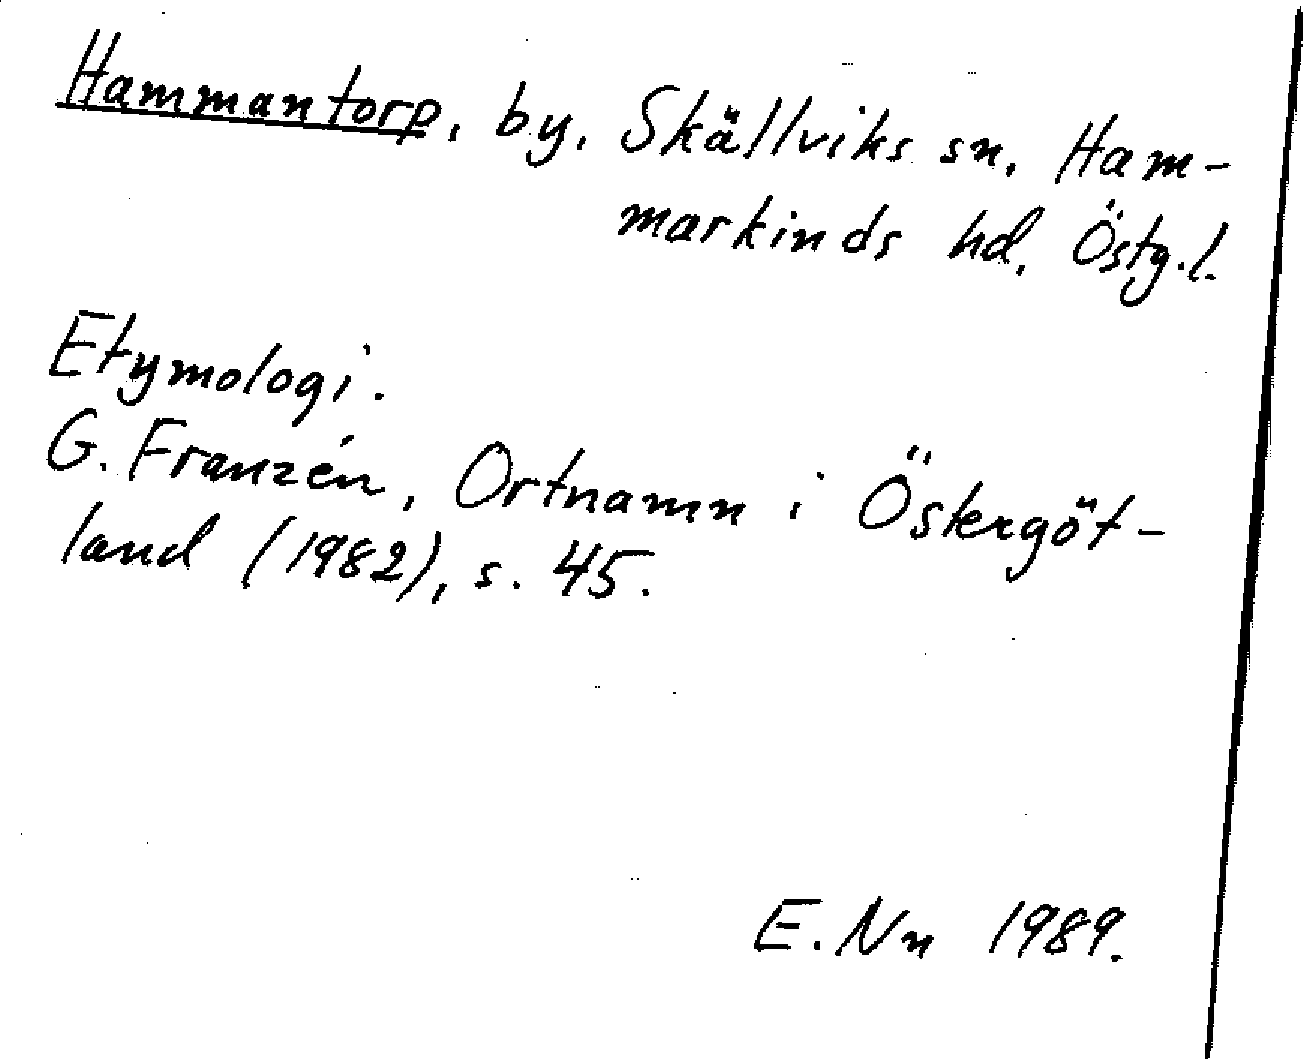 Hammantorp, by, Skällviks sn, Ham-
markinds hd, Östg.l.
Etymologi.
G. Franzén, Ortnamn i Östergöt-
land (1982), s. 45.
E. Nn 1989.